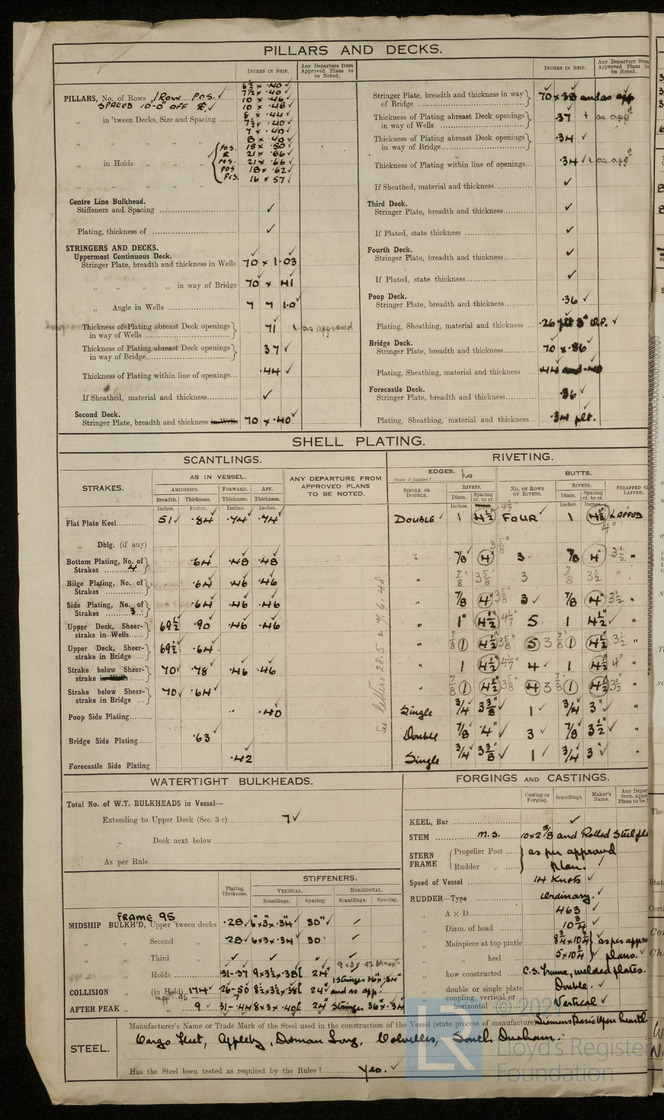 PILLARS AND DECKS.
INCHES IN SHIP.
Any Departure from Approved Plans to be Noted.
PILLARS, No. of Rows 1 Row P.O.S. ✓
SPACED 10'-0" OFF ₵ ✓
" in 'tween Decks, Size and Spacing
7½ × .40
10 × .46
8 × .44
7½ × .40
7 × .40
8 × .40
in Holds
P.O.S. 18 × .50
21 × .66
P.O.S. 21 × .66
P.O.S. 18 × .62
16 × .57
Centre Line Bulkhead.
Stiffeners and Spacing ✓
Plating, thickness of ✓
STRINGERS AND DECKS.
Uppermost Continuous Deck.
Stringer Plate, breadth and thickness in Wells 70 × 1.03
" " " in way of Bridge 70 ×
" Angle in Wells 7 7 1.0
Thickness of Plating abreast Deck openings in way of Wells 71 as approved
Thickness of Plating abreast Deck openings in way of Bridge 37 ✓
Thickness of Plating within line of openings .44 ✓
If Sheathed, material and thickness ✓
Second Deck.
Stringer Plate, breadth and thickness in Wells 70 × .40
INCHES IN SHIP.
Any Departure from Approved Plans to be Noted.
Stringer Plate, breadth and thickness in way of Bridge 70 × .38 and as app
Thickness of Plating abreast Deck openings in way of Wells .37 as appd
Thickness of Plating abreast Deck openings in way of Bridge .34 ✓
Thickness of Plating within line of openings .34 ✓ as appd
If Sheathed, material and thickness ✓
Third Deck.
Stringer Plate, breadth and thickness ✓
If Plated, state thickness ✓
Fourth Deck.
Stringer Plate, breadth and thickness ✓
If Plated, state thickness ✓
Poop Deck.
Stringer Plate, breadth and thickness .36 ✓
Plating, Sheathing, material and thickness .26 3" O.P. ✓
Bridge Deck.
Stringer Plate, breadth and thickness 70 × .56
Plating, Sheathing, material and thickness .44 and
Forecastle Deck.
Stringer Plate, breadth and thickness .36 ✓
Plating, Sheathing, material and thickness .34 plt.
SHELL PLATING.
SCANTLINGS.
RIVETING.
STRAKES.
AS IN VESSEL.
AMIDSHIPS.
FORWARD.
AFT.
Breadth.
Thickness.
Thickness.
Thickness.
Inches.
Inches.
Inches.
Inches.
ANY DEPARTURE FROM APPROVED PLANS TO BE NOTED.
EDGES. No
State if joggled?
SINGLE OR DOUBLE.
RIVETS.
Diam.
Spacing cr. to cr.
BUTTS.
No. OF ROWS OF RIVETS.
RIVETS.
Diam.
Spacing cr. to cr.
STRAPPED OR LAPPED.
Flat Plate Keel 51 ✓ .84 .74 .74 DOUBLE 1 4½ FOUR 1 4½ LAPPED
" Dblg. (if any)
Bottom Plating, No. of Strakes 4 .64 .48 .48 " 7/8 4" 3 7/8 4" 3½ "
Bilge Plating, No. of Strakes .64 .46 .46 " 7/8 3⅞ 3 7/8 3½ "
Side Plating, No. of Strakes 3 .64 .46 .46 " 7/8 4" 3⅞ 3 7/8 4" 3½ "
Upper Deck, Sheer-strake in Wells 69½ .90 .46 .46 " 1 4½ 5 1 4½ ✓ "
Upper Deck, Sheer-strake in Bridge 69½ .64 " 7/8 1 4½ 3⅞ 5 3 7/8 1 4½ 3½ "
Strake below Sheer-strake in Wells 70 .78 .46 .46 " 1 4½ 4 ✓ 1 4½ 4" "
Strake below Sheer-strake in Bridge 70 .64 " 7/8 1 4½ 3⅞ 4 3 7/8 1 4½ 3½ "
Poop Side Plating .40 Single 3/4 3⅜ 1 ✓ 3/4 3" ✓ "
Bridge Side Plating .63 Double 7/8 4" 3 ✓ 7/8 3½ ✓ "
Forecastle Side Plating .42 Single 3/4 3⅜ 1 ✓ 3/4 3 ✓ "
See letters 28.5 & 9.6.48
WATERTIGHT BULKHEADS.
Total No. of W.T. BULKHEADS in Vessel—
Extending to Upper Deck (Sec. 3 c) 7 ✓
" Deck next below
As per Rule
Plating Thickness.
STIFFENERS.
VERTICAL.
HORIZONTAL.
Scantlings.
Spacing.
Scantlings.
Spacing.
FRAME 95
MIDSHIP BULKH'D, Upper 'tween decks .28 6"×3"×.34" 30" ✓
" " Second " .28 6×3×.34 30" ✓
" " Third " ✓ ✓ ✓ ✓
" " Holds .31-.37 9×3½×.38 24"
COLLISION " (in Hold) .26-.50 8½×3½×.38 24" and as app.
AFTER PEAK " .31-.44 8×3×.40 24" Stringer 36" × .34
FORGINGS AND CASTINGS.
Casting or Forging.
Scantlings.
Maker's Name.
Any Depar from Appro Plans to be
KEEL, Bar ✓
STEM M.S. 10×2⅜ and Rolled Steel pla
STERN FRAME
Propeller Post
Rudder "
as per approved Plan.
Speed of Vessel 14 Knots ✓
RUDDER—Type Ordinary. ✓
" A × D 463 ✓
" Diam. of head 10¾ ✓
" Mainpiece at top pintle 8¾×10¾
" " heel 5×10¾ as per appro plans. ✓
" how constructed C.S. Frame, welded plates.
" double or single plate Double. ✓
" coupling, vertical or horizontal Vertical ✓
STEEL.
Manufacturer's Name or Trade Mark of the Steel used in the construction of the Vessel (state process of manufacture) Siemens Basic Open hearth
Cargo Fleet, Appleby, Dorman Long, Colvilles, South Durham.
Has the Steel been tested as required by the Rules? Yes. ✓
LR
© 202
Lloyd's Register
Foundation